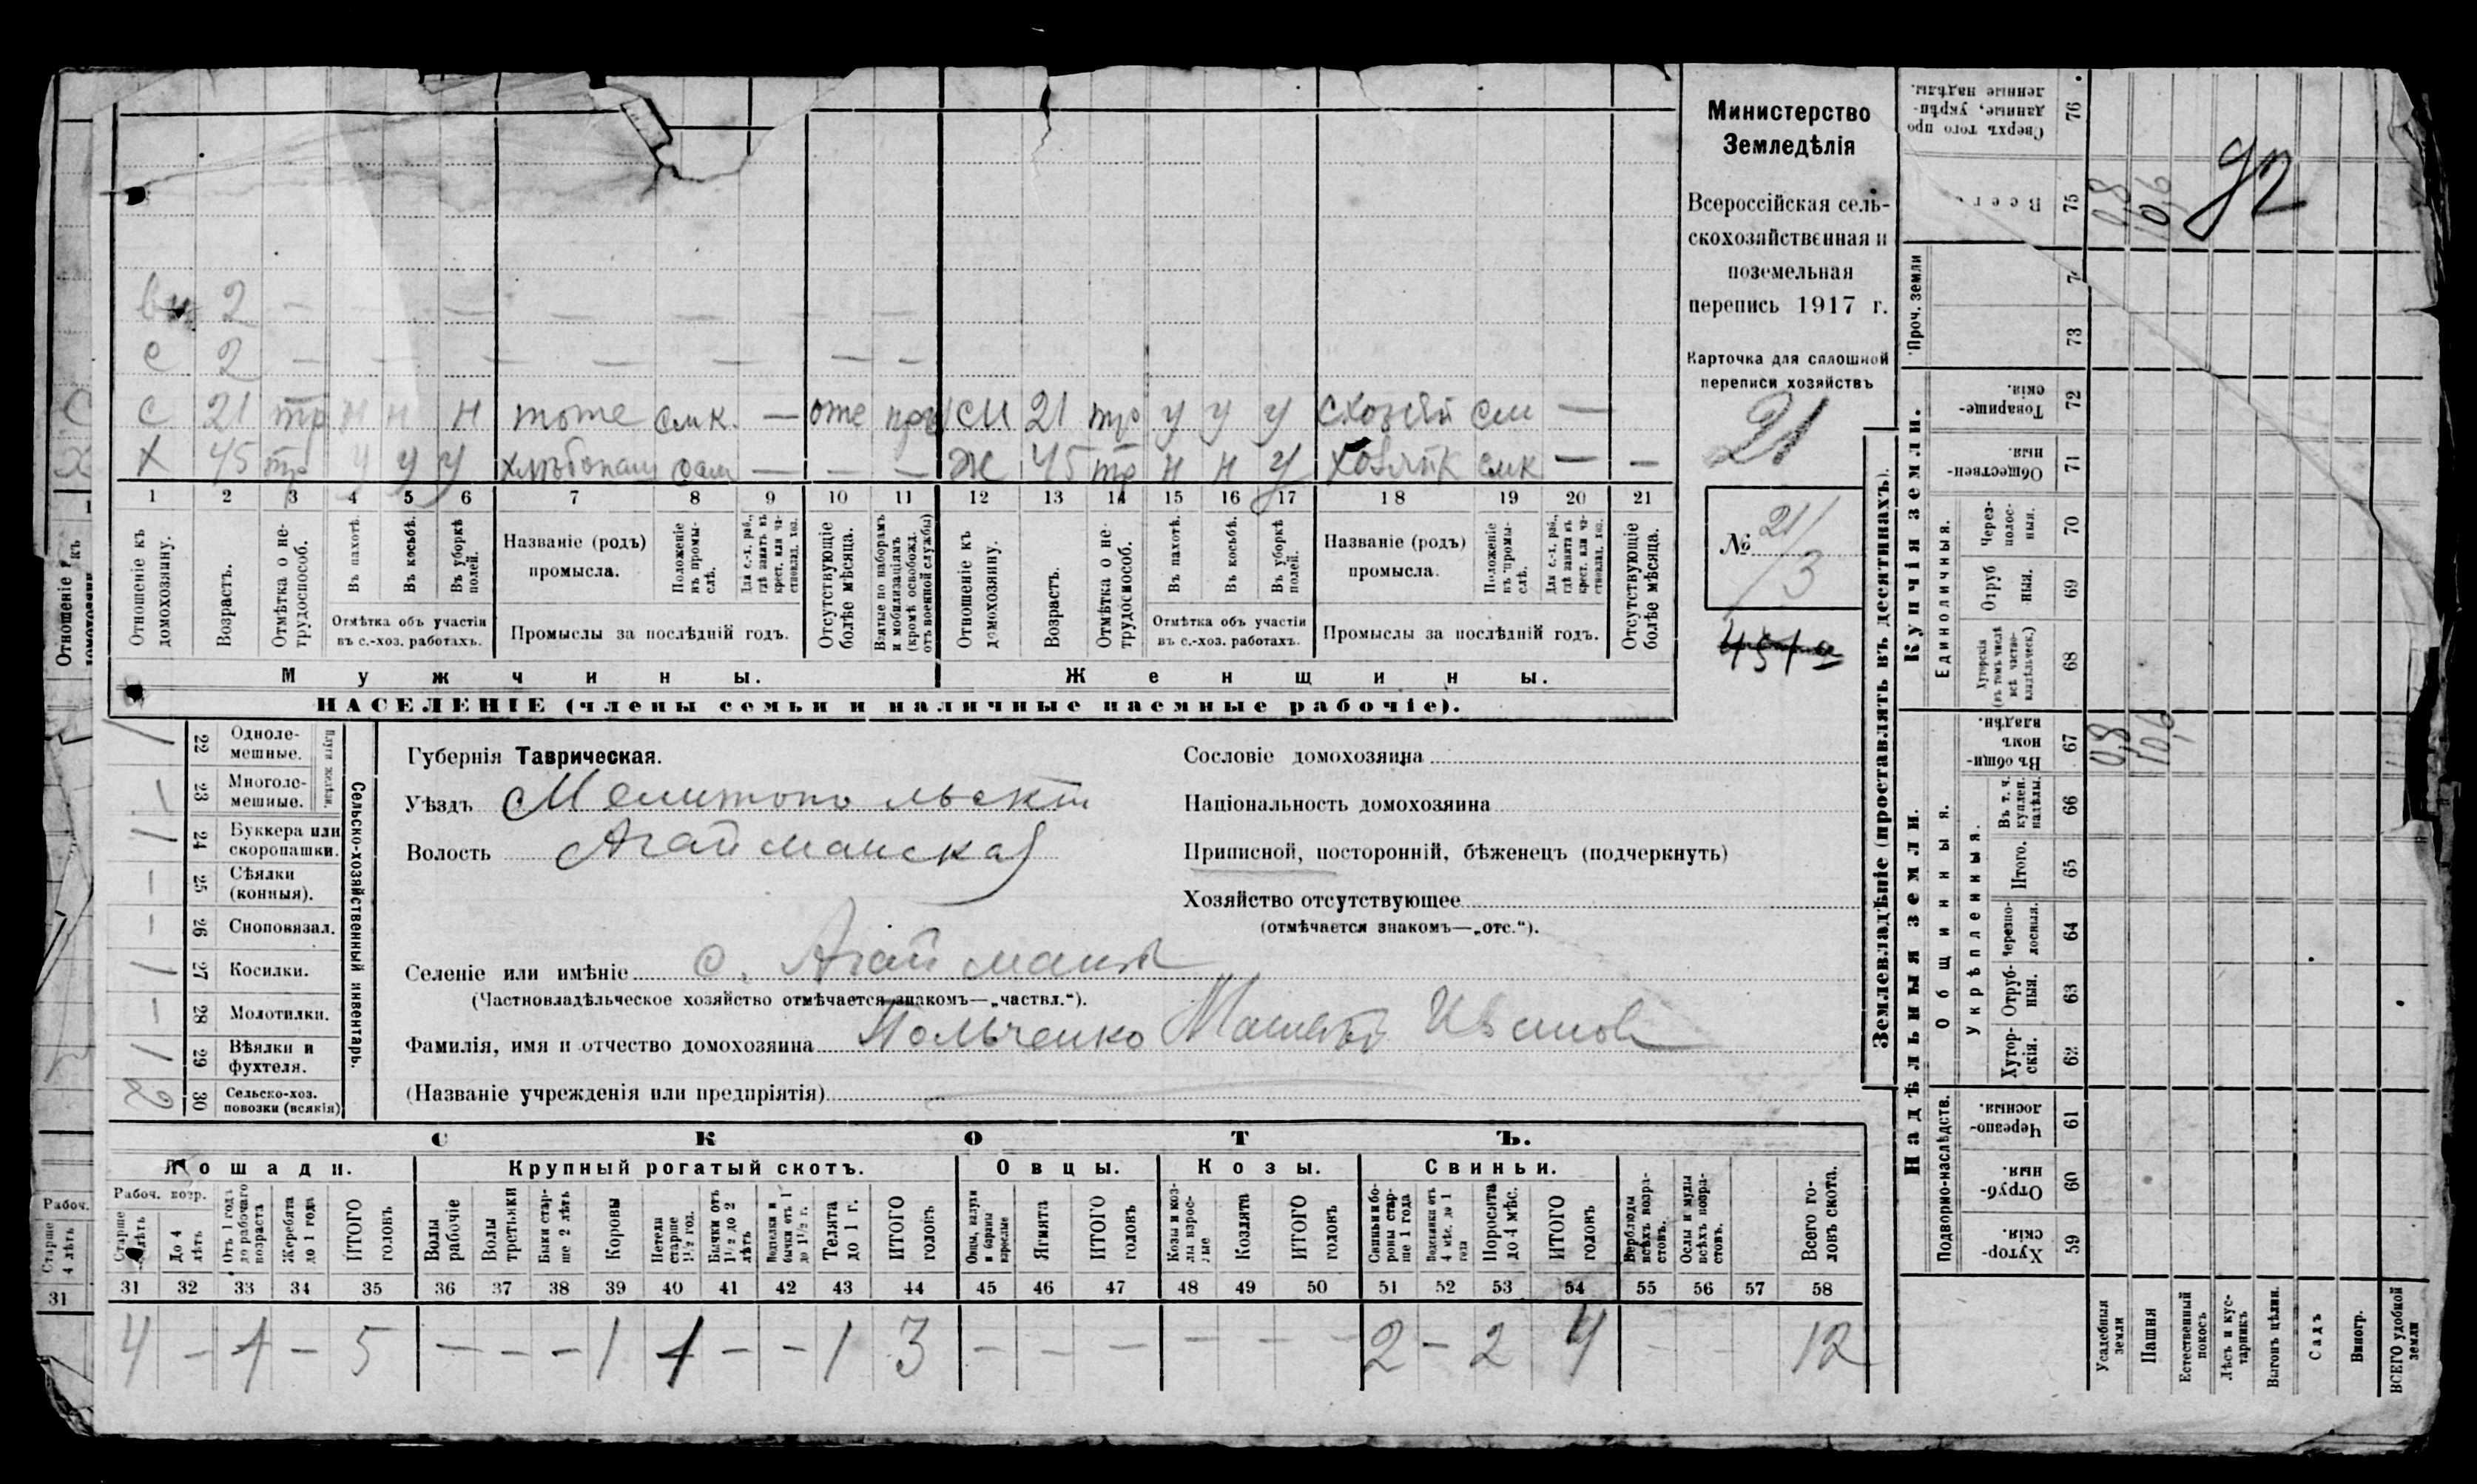 Министерство
Земледѣлія
Всероссійская сель-
скохозяйственная и
поземельная
перепись 1917 г.
Карточка для сплошной
переписи хозяйствъ
21
№ 21/3
451а
вн 2 — — — — — — — —
с 2 — — — — — — —
с 21 тр н н н тоже смк. — оже см 21 тр у у у см —
х 45 тр у у у хлѣбопаш сам — — — ж 45 тр н н у хозяйк смк — —
1 2 3 4 5 6 7 8 9 10 11 12 13 14 15 16 17 18 19 20 21
Отношеніе къ домохозяину.
Возрастъ.
Отмѣтка о не-трудоспособ.
Въ пахотѣ.
Въ косьбѣ.
Въ уборкѣ полей.
Отмѣтка объ участіи въ с.-хоз. работахъ.
Названіе (родъ) промысла.
Положеніе въ промы-слѣ.
Для с.-х. раб., гдѣ занятъ въ крест. или ча-стновлад. хоз.
Промыслы за послѣдній годъ.
Отсутствующіе болѣе мѣсяца.
Взятые по наборамъ и мобилизаціямъ (кромѣ освобожд. отъ военной службы)
Отношеніе къ домохозяину.
Возрастъ.
Отмѣтка о не-трудоспособ.
Въ пахотѣ.
Въ косьбѣ.
Въ уборкѣ полей.
Отмѣтка объ участіи въ с.-хоз. работахъ.
Названіе (родъ) промысла.
Положеніе въ промы-слѣ.
Для с.-х. раб., гдѣ занята въ крест. или ча-стновлад. хоз.
Промыслы за послѣдній годъ.
Отсутствующіе болѣе мѣсяца.
Мужчины. Женщины.
НАСЕЛЕНІЕ (члены семьи и наличные наемные рабочіе).
Сельско-хозяйственный инвентарь.
Плуги желѣзн.
1 22 Одноле-мешные.
— 23 Многоле-мешные.
1 24 Буккера или скоропашки.
— 25 Сѣялки (конныя).
— 26 Сноповязал.
1 27 Косилки.
— 28 Молотилки.
1 29 Вѣялки и фухтеля.
2 30 Сельско-хоз. повозки (всякія)
Губернія Таврическая.
Уѣздъ Мелитопольскій
Волость Агайманская
Селеніе или имѣніе с. Агайманъ
(Частновладѣльческое хозяйство отмѣчается знакомъ—„частвл.“).
Фамилія, имя и отчество домохозяина Польченко Матвѣй Иванов
(Названіе учрежденія или предпріятія)
Сословіе домохозяина
Національность домохозяина
Приписной, посторонній, бѣженецъ (подчеркнуть)
Хозяйство отсутствующее
(отмѣчается знакомъ—„отс.“).
СКОТЪ.
Лошади. Крупный рогатый скотъ. Овцы. Козы. Свиньи.
Рабоч. возр.
Старше 4 лѣтъ
До 4 лѣтъ
Отъ 1 года до рабочаго возраста
Жеребята до 1 года
ИТОГО головъ
Волы рабочіе
Волы третьяки
Быки стар-ше 2 лѣтъ
Коровы
Нетели старше 1½ год.
Бычки отъ 1½ до 2 лѣтъ
Телки и бычки отъ 1 до 1½ г.
Телята до 1 г.
ИТОГО головъ
Овцы, валухи и бараны взрослые
Ягнята
ИТОГО головъ
Козы и коз-лы взрос-лые
Козлята
ИТОГО головъ
Свиньи и бо-ровы стар-ше 1 года
Подсвинки отъ 4 мѣс. до 1 года
Поросята до 4 мѣс.
ИТОГО головъ
Верблюды всѣхъ возра-стовъ.
Ослы и мулы всѣхъ возра-стовъ.
Всего го-ловъ скота.
31 32 33 34 35 36 37 38 39 40 41 42 43 44 45 46 47 48 49 50 51 52 53 54 55 56 57 58
4 — 1 — 5 — — — 1 1 — — 1 3 — — — — — — 2 — 2 4 — — 12
Землевладѣніе (проставлять въ десятинахъ).
Надѣльныя земли. Купчія земли.
Подворно-наслѣдств.
Общинныя.
Укрѣпленныя.
Единоличныя.
Проч. земли
Хутор-скія. 59
Отруб-ныя. 60
Черезпо-лосныя. 61
Хутор-скія. 62
Отруб-ныя. 63
Черезпо-лосныя. 64
Итого. 65
Въ т. ч. куплен. надѣлы. 66
Въ общин-номъ владѣн. 67
Хуторскія (въ томъ числѣ всѣ частно-владѣльческ.) 68
Отруб ныя. 69
Через-полос-ныя. 70
Обществен-ныя. 71
Товарище-скія. 72
73
74
75
Сверхъ того про данные, укрѣп-ленные надѣлы. 76
0,8 10,6
0,8 10,6
92
Усадебныя земли
Пашня
Естественный покосъ
Лѣсъ и кус-тарникъ
Выгонъ цѣлин.
Садъ
Виногр.
ВСЕГО удобной земли
С
Х
Отношеніе къ
Рабоч.
Старше 4 лѣтъ
31